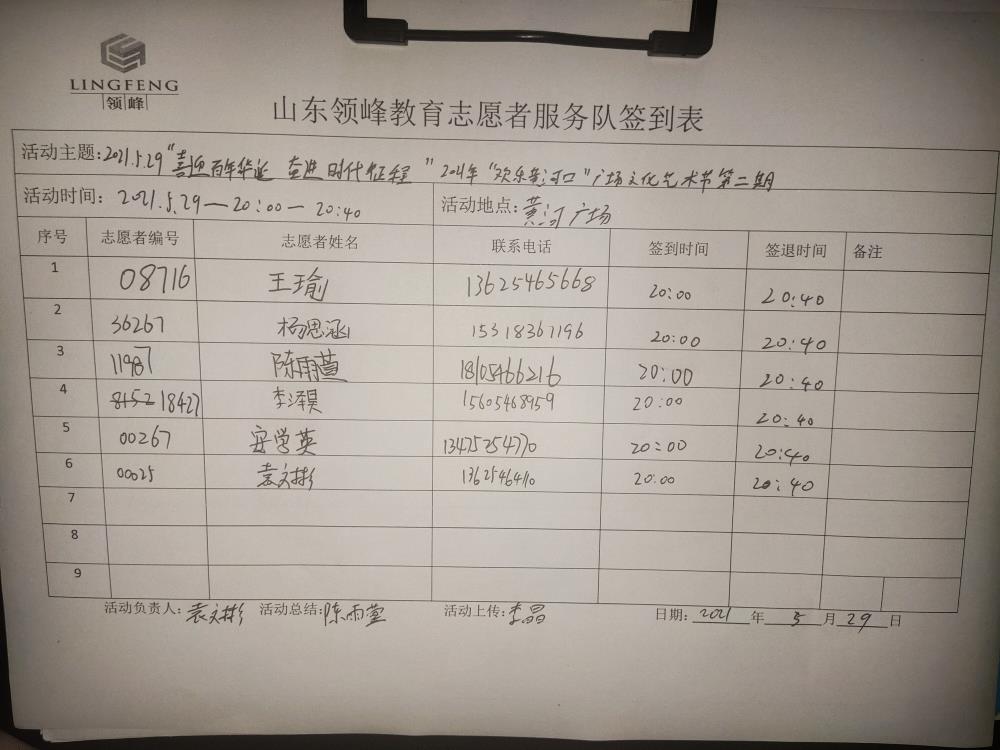 LINGFENG
领峰
山东领峰教育志愿者服务队签到表
活动主题:2021.5.29“喜迎百年华诞 奋进时代征程”2021年“欢乐黄河口”广场文化艺术节第二期
活动时间:2021.5.29—20:00—20:40 活动地点:黄河广场
序号 志愿者编号 志愿者姓名 联系电话 签到时间 签退时间 备注
1 08716 王瑜 13625465668 20:00 20:40
2 36267 杨思涵 15318367196 20:00 20:40
3 11987 陈雨萱 18105466216 20:00 20:40
4 18427 李泽昊 15605468959 20:00 20:40
5 00267 安学英 13475254770 20:00 20:40
6 00025 袁文彬 20:00 20:40
7
8
9
活动负责人:袁文彬 活动总结:陈雨萱 活动上传:李晶 日期:2021年5月29日